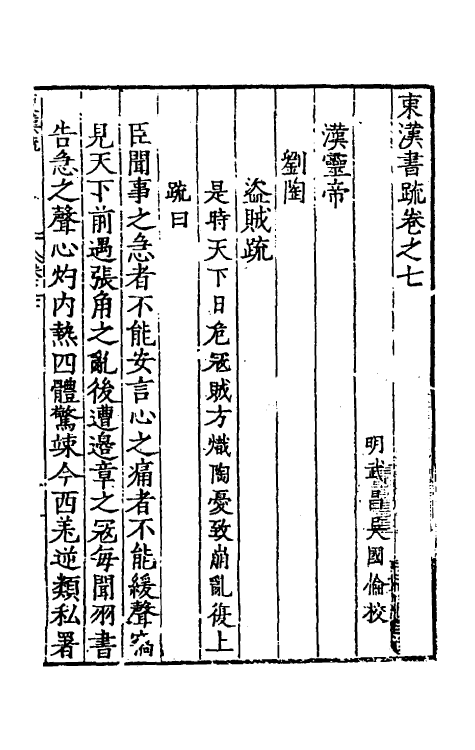 東漢書疏卷之七
明武昌吳國倫校
漢靈帝
劉陶
盜賊疏
是時天下日危寇賊方熾陶憂致崩亂復上
疏曰
臣聞事之急者不能安言心之痛者不能緩聲竊
見天下前遇張角之亂後遭邊章之寇每聞羽書
告急之聲心灼内熱四體驚竦今西羌逆類私署